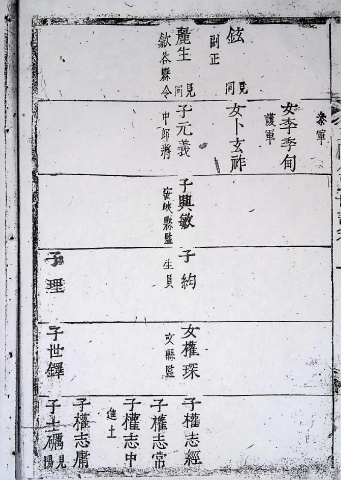 鉉
副正
見同
麗生
歙谷縣令
見同
參軍
女李季甸
護軍
女卜玄祚
子元義
中郞將
子興敏
安峽縣監
子絢
生員
子理
女權琛
文縣監
子世鐸
子權志經
子權志常
子權志中
進士
子權志庸
子士礪
見楊